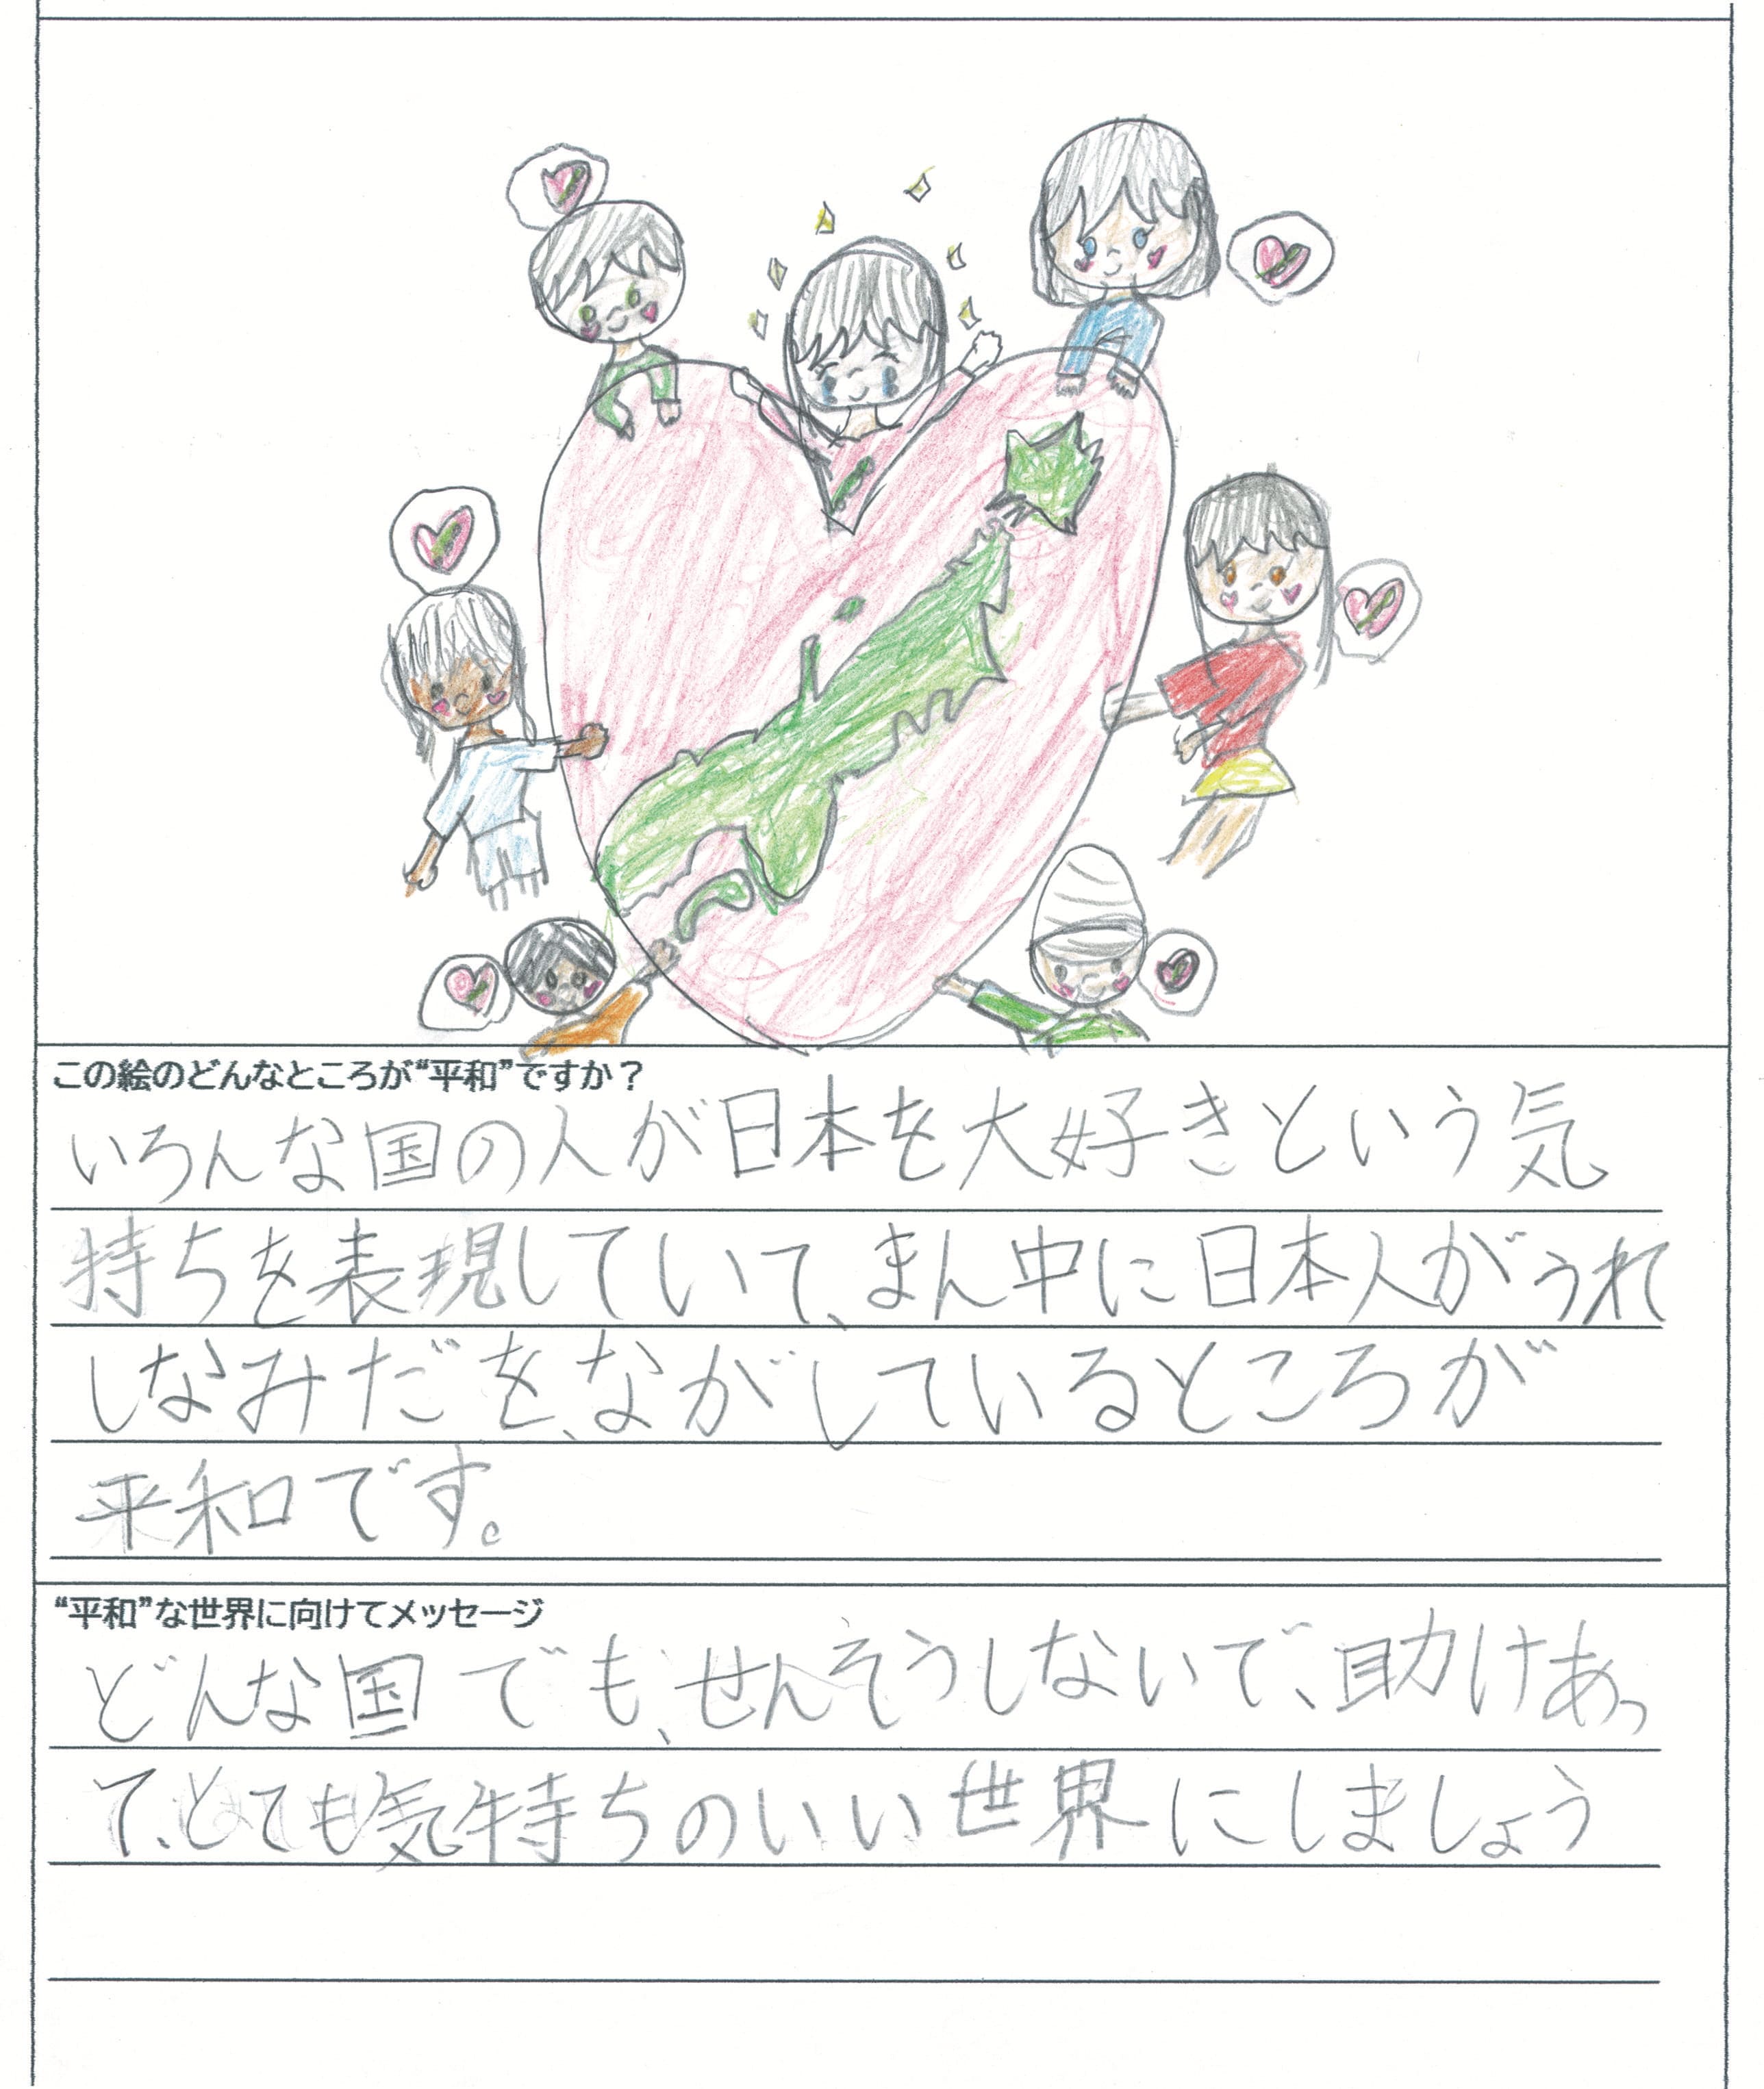 この絵のどんなところが“平和”ですか？
いろんな国の人が日本を大好きという気
持ちを表現していて、まん中に日本人がうれ
しなみだを、ながしているところが
平和です。
“平和”な世界に向けてメッセージ
どんな国でも、せんそうしないで、助けあっ
て、とても気持ちのいい世界にしましょう